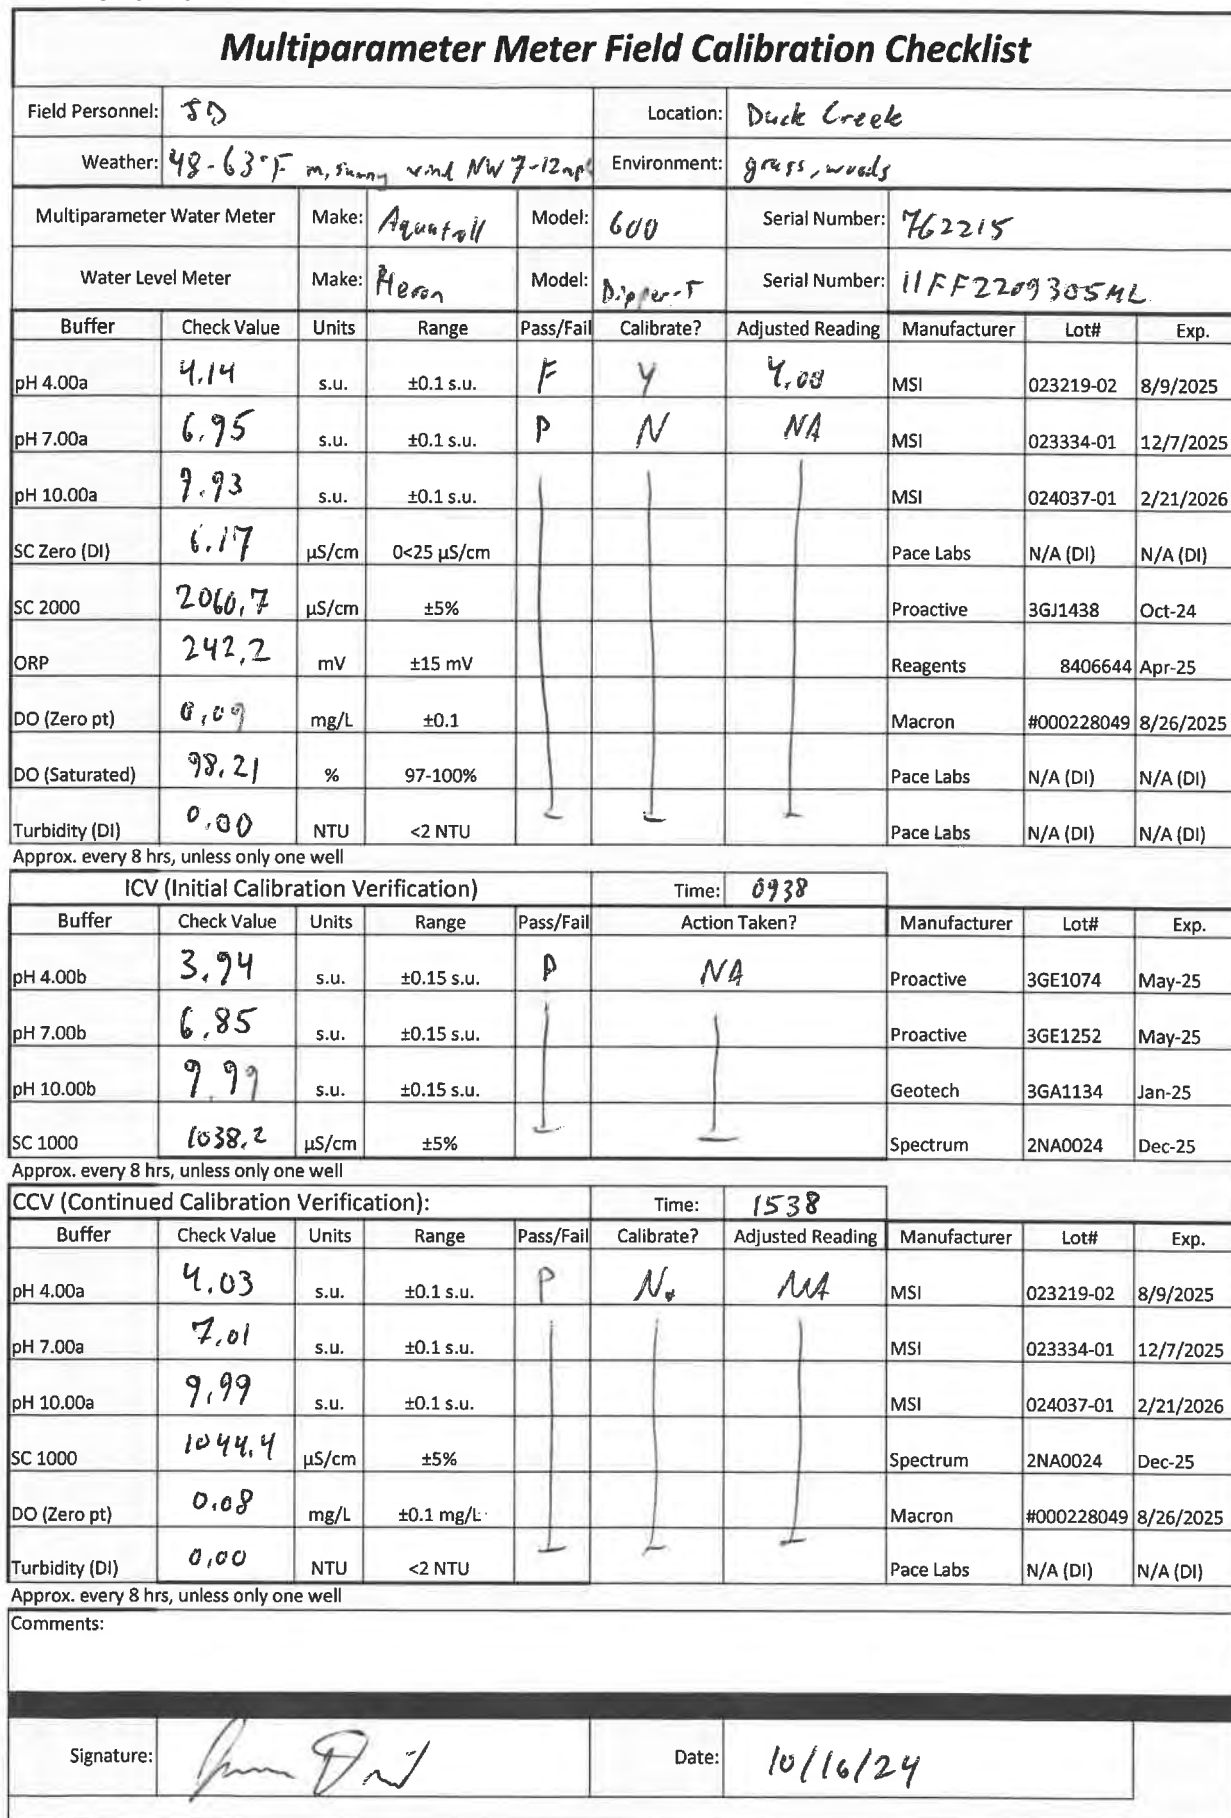 Multiparameter Meter Field Calibration Checklist
Field Personnel: JD Location: Duck Creek
Weather: 48-63°F m, sunny wind NW 7-12mph Environment: grass, woods
Multiparameter Water Meter Make: Aquatroll Model: 600 Serial Number: 762215
Water Level Meter Make: Heron Model: Dipper-T Serial Number: 11FF2209305ML
Buffer Check Value Units Range Pass/Fail Calibrate? Adjusted Reading Manufacturer Lot# Exp.
pH 4.00a 4.14 s.u. ±0.1 s.u. F Y 4.00 MSI 023219-02 8/9/2025
pH 7.00a 6.95 s.u. ±0.1 s.u. P N NA MSI 023334-01 12/7/2025
pH 10.00a 9.93 s.u. ±0.1 s.u. MSI 024037-01 2/21/2026
SC Zero (DI) 6.17 µS/cm 0<25 µS/cm Pace Labs N/A (DI) N/A (DI)
SC 2000 2060.7 µS/cm ±5% Proactive 3GJ1438 Oct-24
ORP 242.2 mV ±15 mV Reagents 8406644 Apr-25
DO (Zero pt) 0.09 mg/L ±0.1 Macron #000228049 8/26/2025
DO (Saturated) 98.21 % 97-100% Pace Labs N/A (DI) N/A (DI)
Turbidity (DI) 0.00 NTU <2 NTU Pace Labs N/A (DI) N/A (DI)
Approx. every 8 hrs, unless only one well
ICV (Initial Calibration Verification) Time: 0938
Buffer Check Value Units Range Pass/Fail Action Taken? Manufacturer Lot# Exp.
pH 4.00b 3.94 s.u. ±0.15 s.u. P NA Proactive 3GE1074 May-25
pH 7.00b 6.85 s.u. ±0.15 s.u. Proactive 3GE1252 May-25
pH 10.00b 9.99 s.u. ±0.15 s.u. Geotech 3GA1134 Jan-25
SC 1000 1038.2 µS/cm ±5% Spectrum 2NA0024 Dec-25
Approx. every 8 hrs, unless only one well
CCV (Continued Calibration Verification): Time: 1538
Buffer Check Value Units Range Pass/Fail Calibrate? Adjusted Reading Manufacturer Lot# Exp.
pH 4.00a 4.03 s.u. ±0.1 s.u. P N NA MSI 023219-02 8/9/2025
pH 7.00a 7.01 s.u. ±0.1 s.u. MSI 023334-01 12/7/2025
pH 10.00a 9.99 s.u. ±0.1 s.u. MSI 024037-01 2/21/2026
SC 1000 1044.4 µS/cm ±5% Spectrum 2NA0024 Dec-25
DO (Zero pt) 0.08 mg/L ±0.1 mg/L Macron #000228049 8/26/2025
Turbidity (DI) 0.00 NTU <2 NTU Pace Labs N/A (DI) N/A (DI)
Approx. every 8 hrs, unless only one well
Comments:
Signature: Date: 10/16/24